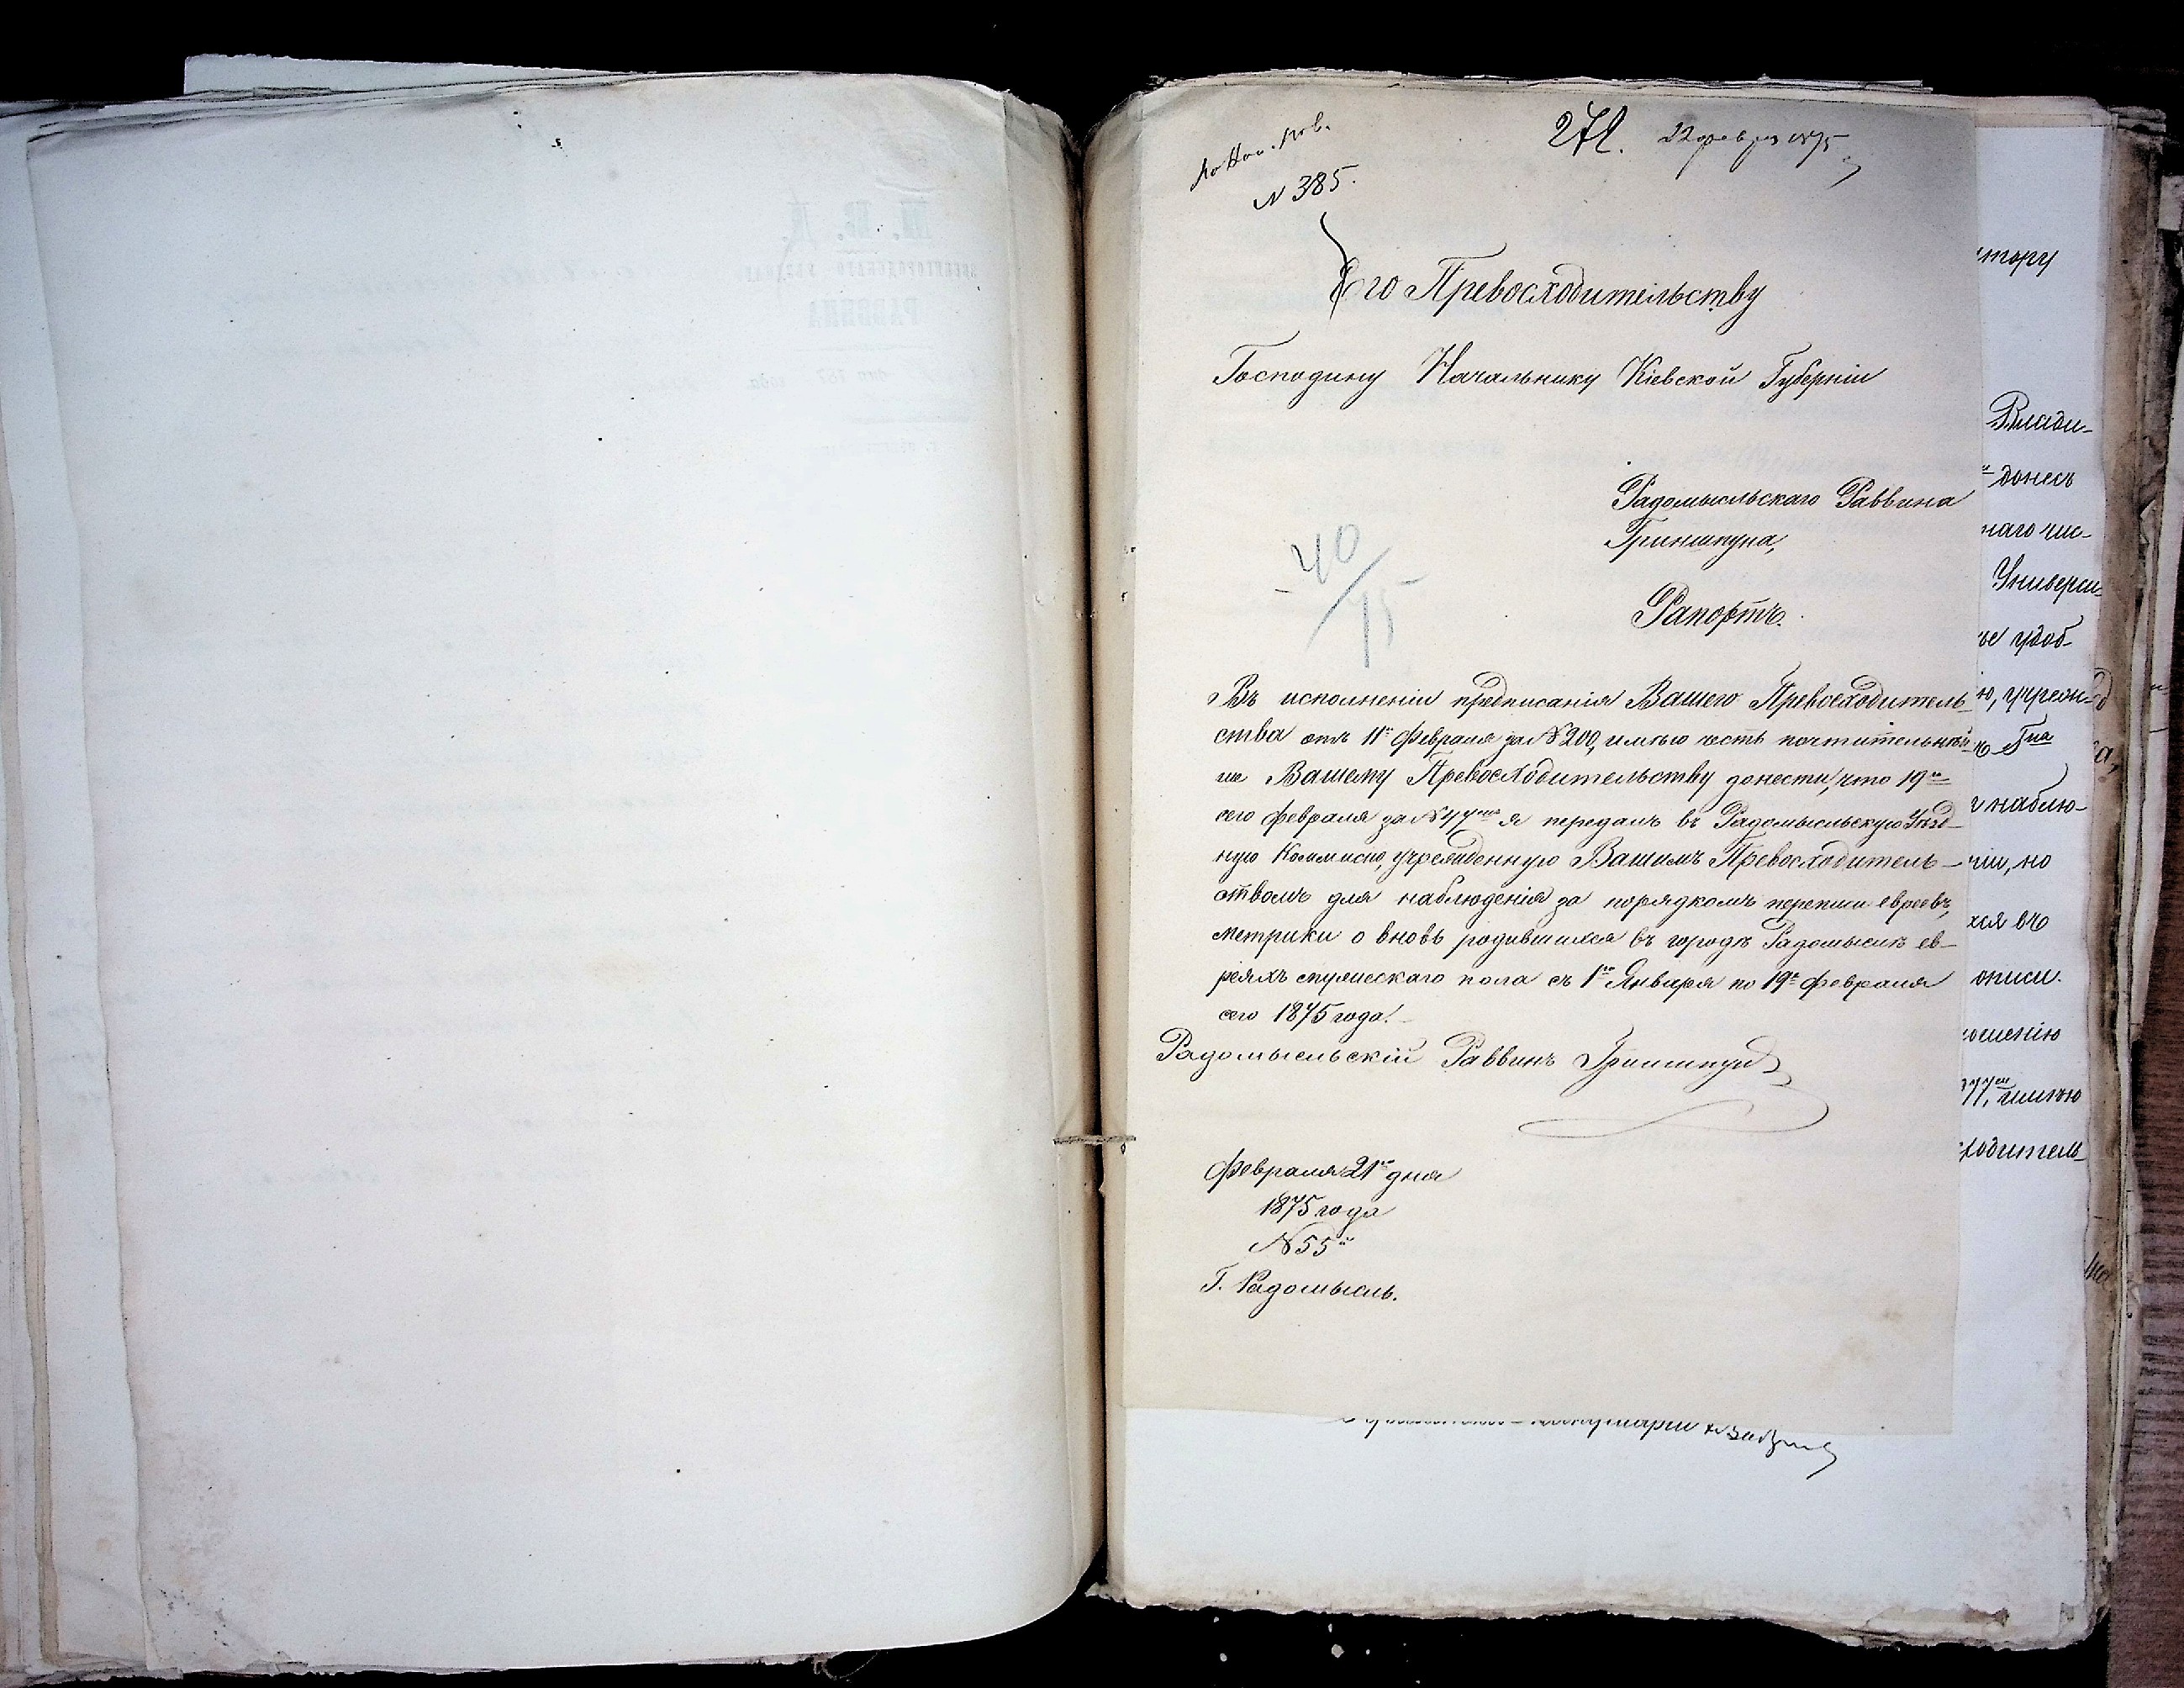 N 385.
22 февр 1875
Его Превосходительству
Господину Начальнику Кіевской Губерніи
Радомысльскаго Раввина
Гриншпуна,
40/75
Рапортъ.
Въ исполненіи предписанія Вашего Превосходитель-
ства отъ 11го Февраля за №200, имѣю честь почтительнѣй-
ше Вашему Превосходительству донести, что 19го
сего Февраля за №47мъ я передалъ въ Радомысльскую Уѣзд-
ную Коммисію, учрежденную Вашимъ Превосходитель-
ствомъ для наблюденія за порядкомъ переписи евреевъ,
метрики о вновь родившихся въ городѣ Радомыслѣ ев-
реяхъ мужескаго пола съ 1го Января по 19е Февраля
сего 1875 года.
Радомысльскій Раввинъ Гриншпунъ
Февраля 21го дня
1875 года
№ 55й
Г. Радомысль.
тору
Влади-
донесъ
наго чис-
Универси-
удоб-
наблю-
но
въ
описи.
имѣю
ходитель-